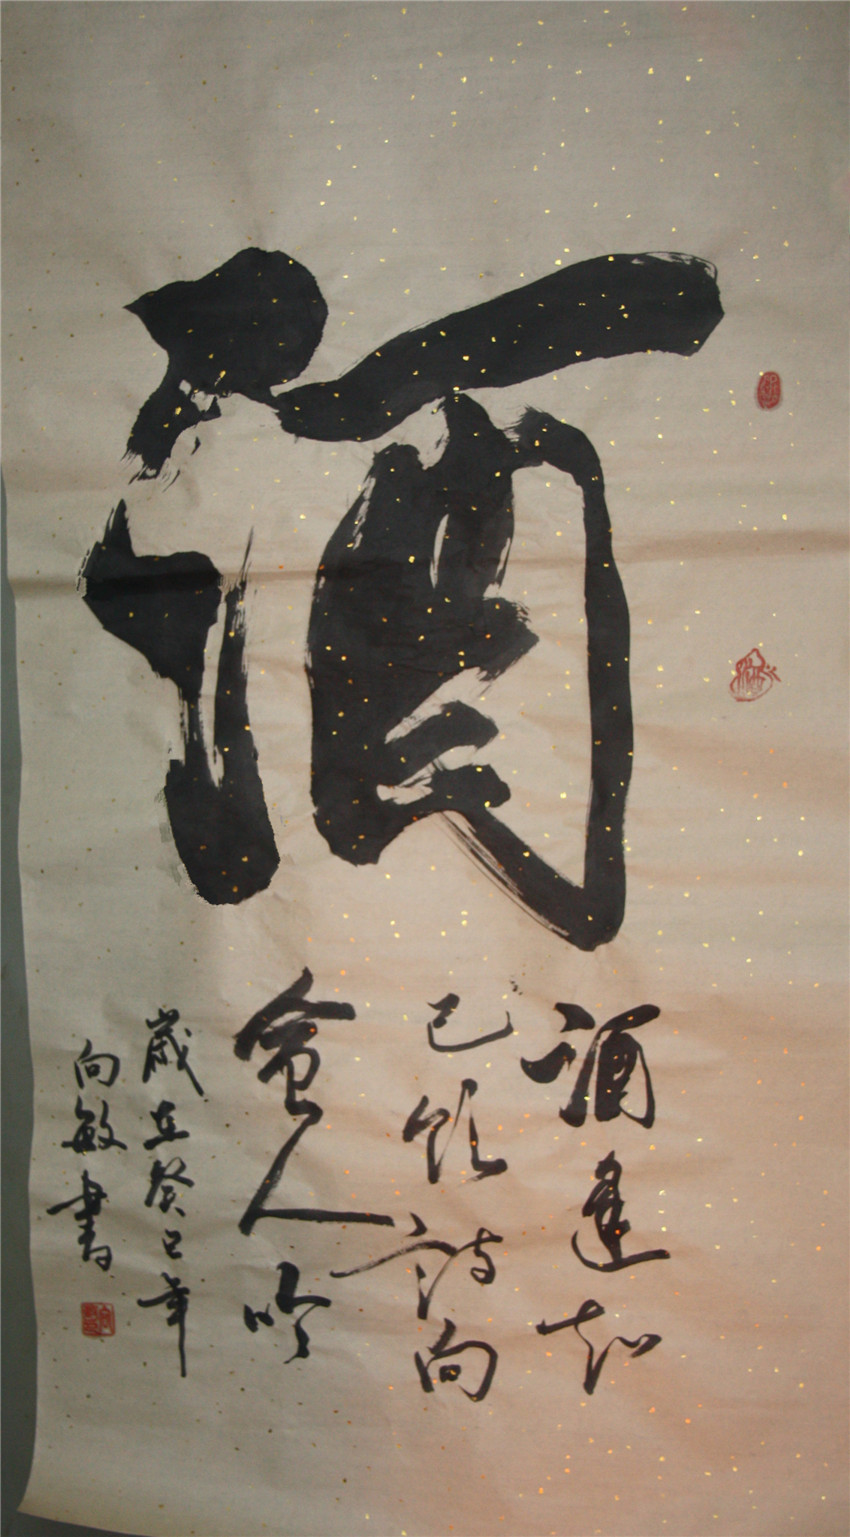 酒
酒逢知
己饮詩向
會人吟
歳在癸巳年
向敏書